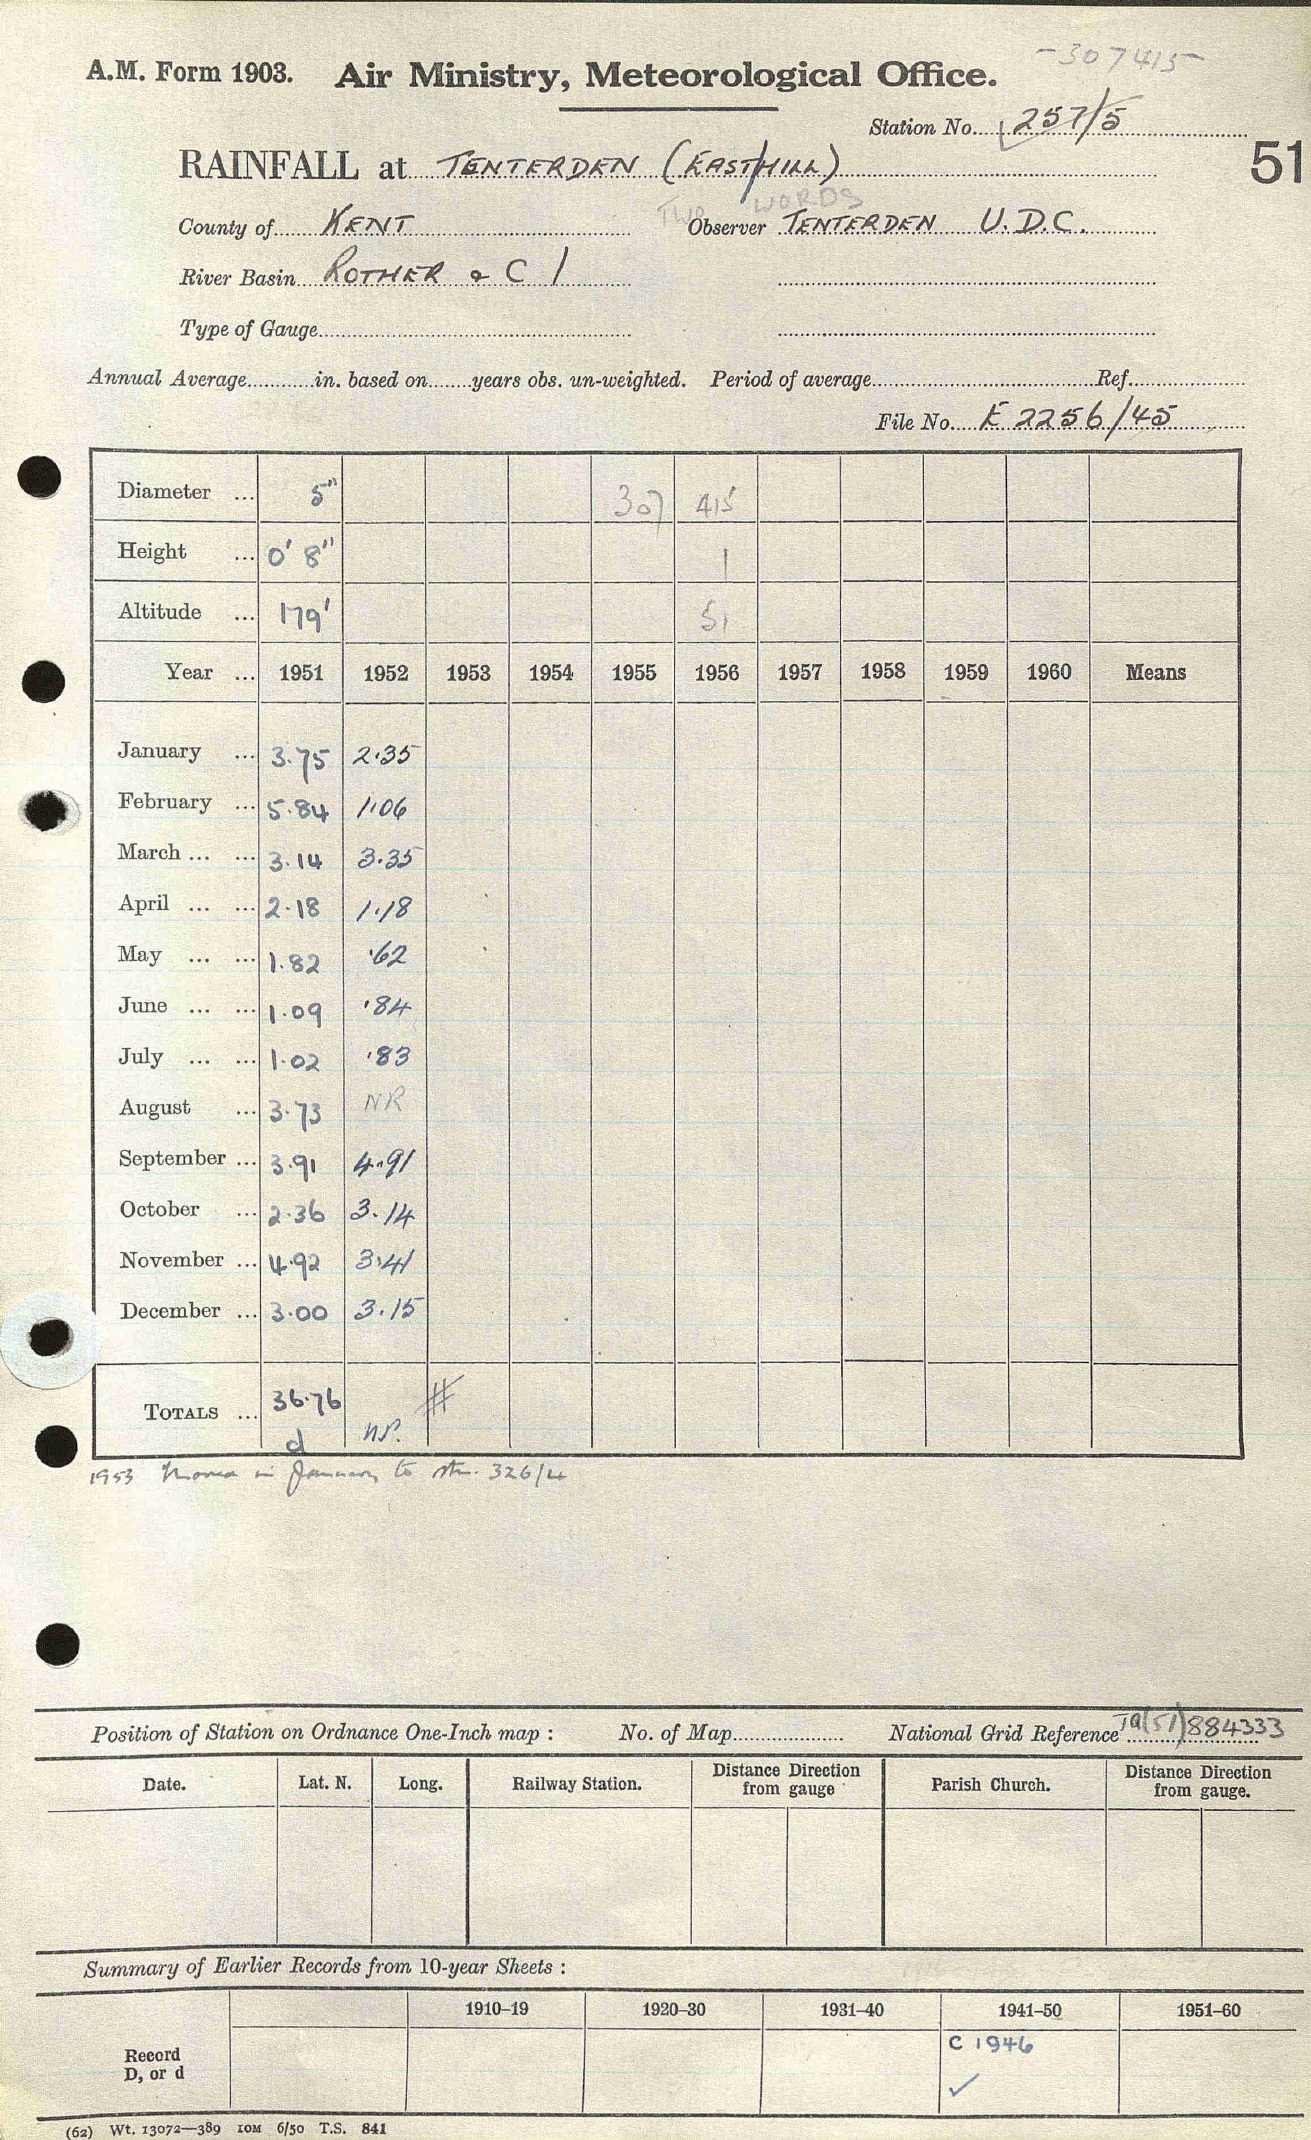 -307415-
A.M. Form 1903. Air Ministry, Meteorological Office.
Station No. 257/5
51
RAINFALL at TENTERDEN (EAST/HILL)
TWO WORDS
County of KENT Observer TENTERDEN U.D.C.
River Basin ROTHER & C 1
Type of Gauge
Annual Average in. based on years obs. un-weighted. Period of average Ref.
File No. E 2256/45
Diameter ... 5" 307 415
Height ... 0' 8" 1
Altitude ... 179' 51
Year ... 1951 1952 1953 1954 1955 1956 1957 1958 1959 1960 Means
January ... 3.75 2.35
February ... 5.84 1.06
March ... ... 3.14 3.35
April ... ... 2.18 1.18
May ... ... 1.82 .62
June ... ... 1.09 .84
July ... ... 1.02 .83
August ... 3.73 NR
September ... 3.91 4.91
October ... 2.36 3.14
November ... 4.92 3.41
December ... 3.00 3.15
TOTALS ... 36.76 #
d
1953 Moved in January to stn. 326/4
Position of Station on Ordnance One-Inch map : No. of Map National Grid Reference TQ(51)884333
Date. Lat. N. Long. Railway Station. Distance Direction from gauge Parish Church. Distance Direction from gauge.
Summary of Earlier Records from 10-year Sheets :
1910–19 1920–30 1931–40 1941–50 1951–60
Record C 1946
D, or d ✓
(62) Wt. 13072—389 10M 6/50 T.S. 841